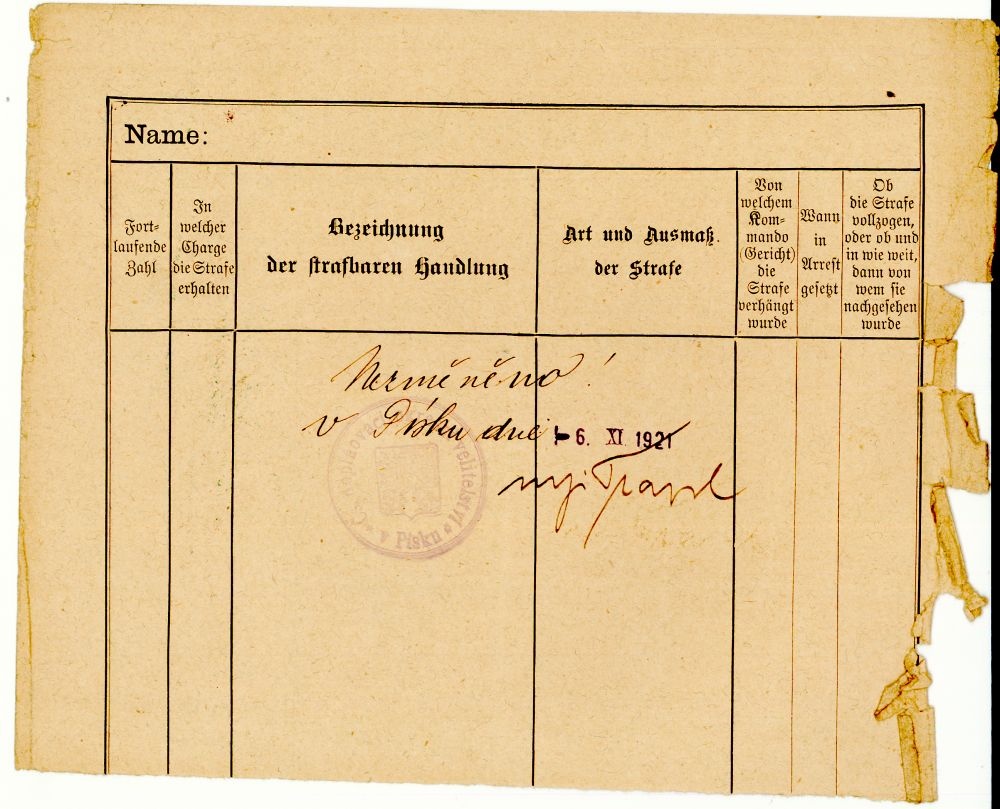 Name:
Fort-
laufende
Zahl
In
welcher
Charge
die Strafe
erhalten
Bezeichnung
der strafbaren Handlung
Art und Ausmaß
der Strafe
Von
welchem
Kom-
mando
(Gericht)
die
Strafe
verhängt
wurde
Wann
in
Arrest
gesetzt
Ob
die Strafe
vollzogen,
oder ob und
in wie weit,
dann von
wem sie
nachgesehen
wurde
Nezměněno!
v Písku dne - 6. XI. 1921
velitelství
v Písku